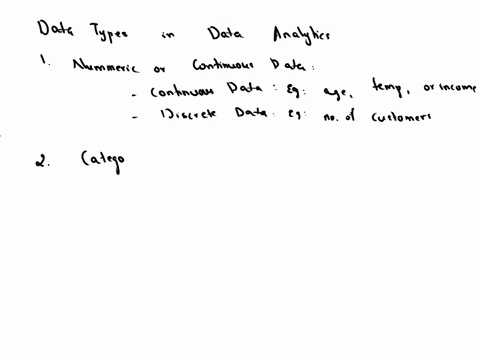 Data Types in Data Analytics
1. Nummeric or Continuous Data:
- Continuous Data: Eg: age, temp, or income
- Discrete Data: Eg: no. of customers
2. Catego